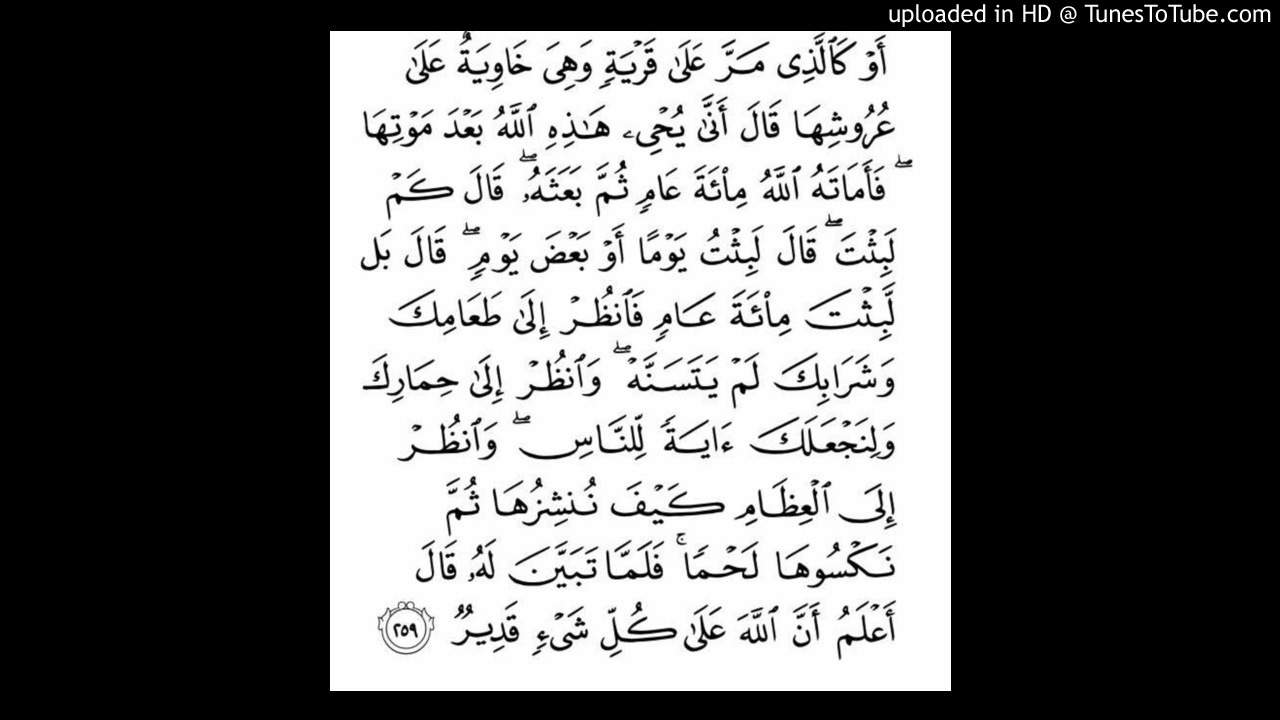 uploaded in HD @ TunesToTube.com
أَوۡ كَٱلَّذِى مَرَّ عَلَىٰ قَرۡيَةٖ وَهِىَ خَاوِيَةٌ عَلَىٰ
عُرُوشِهَا قَالَ أَنَّىٰ يُحۡىِۦ هَـٰذِهِ ٱللَّهُ بَعۡدَ مَوۡتِهَا
ۖ فَأَمَاتَهُ ٱللَّهُ مِاْئَةَ عَامٖ ثُمَّ بَعَثَهُۥۖ قَالَ كَمۡ
لَبِثۡتَۖ قَالَ لَبِثۡتُ يَوۡمًا أَوۡ بَعۡضَ يَوۡمٖۖ قَالَ بَل
لَّبِثۡتَ مِاْئَةَ عَامٖ فَٱنظُرۡ إِلَىٰ طَعَامِكَ
وَشَرَابِكَ لَمۡ يَتَسَنَّهۡۖ وَٱنظُرۡ إِلَىٰ حِمَارِكَ
وَلِنَجۡعَلَكَ ءَايَةٗ لِّلنَّاسِۖ وَٱنظُرۡ
إِلَى ٱلۡعِظَامِ كَيۡفَ نُنشِزُهَا ثُمَّ
نَكۡسُوهَا لَحۡمٗاۚ فَلَمَّا تَبَيَّنَ لَهُۥ قَالَ
أَعۡلَمُ أَنَّ ٱللَّهَ عَلَىٰ كُلِّ شَىۡءٖ قَدِيرٌ ٢٥٩